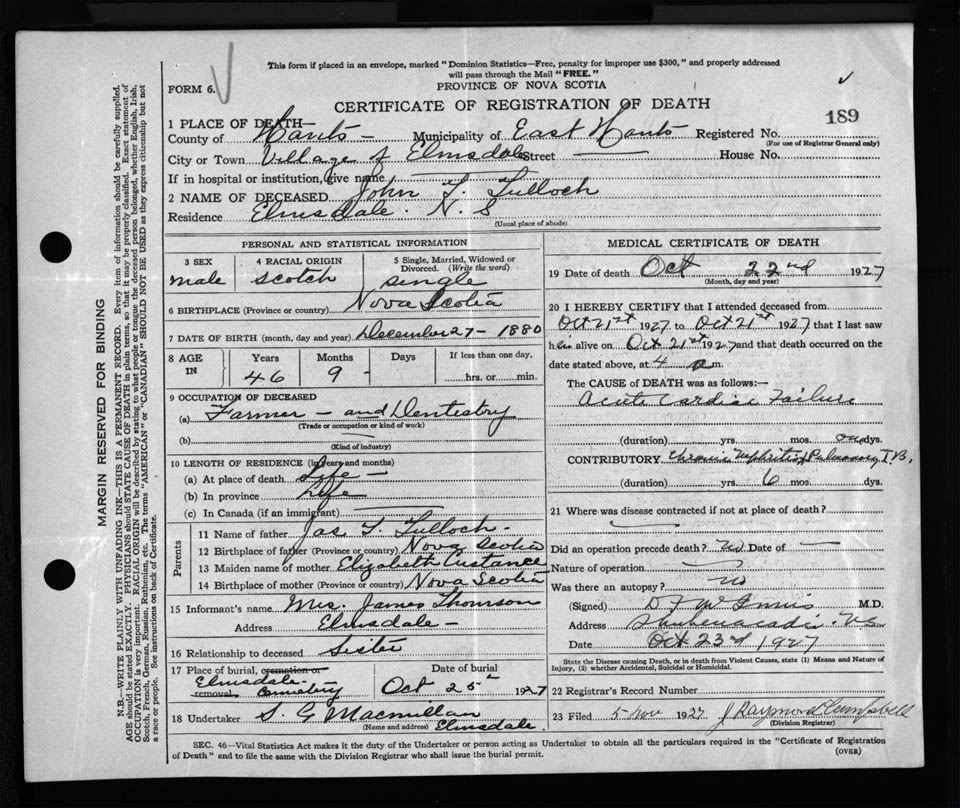 This form if placed in an envelope, marked "Dominion Statistics—Free, penalty for improper use $300," and properly addressed
will pass through the Mail "FREE."
FORM 6.
PROVINCE OF NOVA SCOTIA
CERTIFICATE OF REGISTRATION OF DEATH
189
1 PLACE OF DEATH—
County of Hants — Municipality of East Hants Registered No.
(For use of Registrar General only)
City or Town Village of Elmsdale Street — House No.
If in hospital or institution, give name
2 NAME OF DECEASED John F. Tulloch
Residence Elmsdale. N. S
(Usual place of abode)
PERSONAL AND STATISTICAL INFORMATION
3 SEX male
4 RACIAL ORIGIN Scotch
5 Single, Married, Widowed or Divorced. (Write the word) single
6 BIRTHPLACE (Province or country) Nova Scotia
7 DATE OF BIRTH (month, day and year) December 27 - 1880
8 AGE IN Years Months Days If less than one day,
46 9 - hrs. or min.
9 OCCUPATION OF DECEASED
(a) Farmer — and Dentistry
(Trade or occupation or kind of work)
(b)
(Kind of industry)
10 LENGTH OF RESIDENCE (in years and months)
(a) At place of death Life —
(b) In province Life
(c) In Canada (if an immigrant)
Parents
11 Name of father Jas F. Tulloch -
12 Birthplace of father (Province or country) Nova Scotia
13 Maiden name of mother Elizabeth Custance
14 Birthplace of mother (Province or country) Nova Scotia
15 Informant's name Mrs. James Thomson
Address Elmsdale —
16 Relationship to deceased Sister
17 Place of burial, cremation or removal Elmsdale Cemetery
Date of burial Oct 25 1927
18 Undertaker S. G Macmillan
(Name and address) Elmsdale.
MEDICAL CERTIFICATE OF DEATH
19 Date of death Oct 22nd 1927
(Month, day and year)
20 I HEREBY CERTIFY that I attended deceased from
Oct 21st 1927 to Oct 21st 1927 that I last saw
him alive on Oct 21st 1927 and that death occurred on the
date stated above, at 4 a m.
The CAUSE of DEATH was as follows:—
Acute Cardiac Failure
(duration) yrs. mos. one dys.
CONTRIBUTORY Chronic Nephritis & Pulmonary T.B.
(duration) yrs. 6 mos. dys.
21 Where was disease contracted if not at place of death?
Did an operation precede death? no Date of —
Nature of operation
Was there an autopsy? no
(Signed) D F McInnis M.D.
Address Shubenacadie. N.S
Date Oct 23rd 1927
State the Disease causing Death, or in death from Violent Causes, state (1) Means and Nature of
Injury, (2) whether Accidental, Suicidal or Homicidal.
22 Registrar's Record Number
23 Filed 5 - Nov 1927 J Raymond Campbell
(Division Registrar)
SEC. 46—Vital Statistics Act makes it the duty of the Undertaker or person acting as Undertaker to obtain all the particulars required in the "Certificate of Registration
of Death" and to file the same with the Division Registrar who shall issue the burial permit.
(OVER)
MARGIN RESERVED FOR BINDING
N.B.—WRITE PLAINLY WITH UNFADING INK—THIS IS A PERMANENT RECORD. Every item of information should be carefully supplied.
AGE should be stated EXACTLY. PHYSICIANS should STATE CAUSE OF DEATH in plain terms, so that it may be properly classified. Exact statement of
OCCUPATION is very important. RACIAL ORIGIN will be described by stating to what people or tongue the deceased person belonged, whether English, Irish,
Scotch, French, German, Russian, Ruthenian, etc. The terms "AMERICAN" or "CANADIAN" SHOULD NOT BE USED as they express citizenship but not
a race or people. See instructions on back of Certificate.